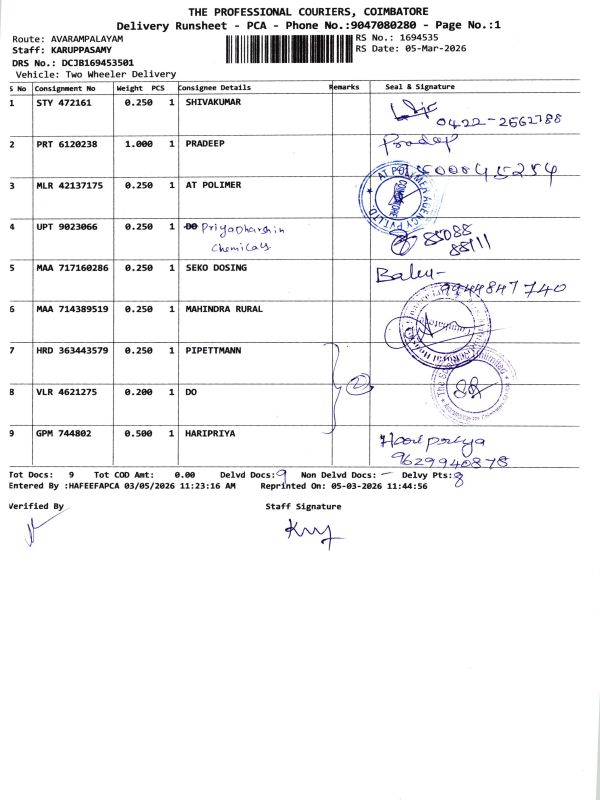 THE PROFESSIONAL COURIERS, COIMBATORE
Delivery Runsheet - PCA - Phone No.:9047080280 - Page No.:1
Route: AVARAMPALAYAM RS No.: 1694535
Staff: KARUPPASAMY RS Date: 05-Mar-2026
DRS No.: DCJB169453501
Vehicle: Two Wheeler Delivery
S No Consignment No Weight PCS Consignee Details Remarks Seal & Signature
1 STY 472161 0.250 1 SHIVAKUMAR
0422-2562788
2 PRT 6120238 1.000 1 PRADEEP Pradeep
3 MLR 42137175 0.250 1 AT POLIMER
AT POLIMER AGENCY PVT.LTD. COIMBATORE
4 UPT 9023066 0.250 1 DO Priyadharshin
Chemicals
85088
88111
5 MAA 717160286 0.250 1 SEKO DOSING
9944847740
6 MAA 714389519 0.250 1 MAHINDRA RURAL
7 HRD 363443579 0.250 1 PIPETTMANN
2
8 VLR 4621275 0.200 1 DO
9 GPM 744802 0.500 1 HARIPRIYA Haripriya
9629940878
Tot Docs: 9 Tot COD Amt: 0.00 Delvd Docs: 9 Non Delvd Docs: - Delvy Pts: 8
Entered By :HAFEEFAPCA 03/05/2026 11:23:16 AM Reprinted On: 05-03-2026 11:44:56
Verified By Staff Signature